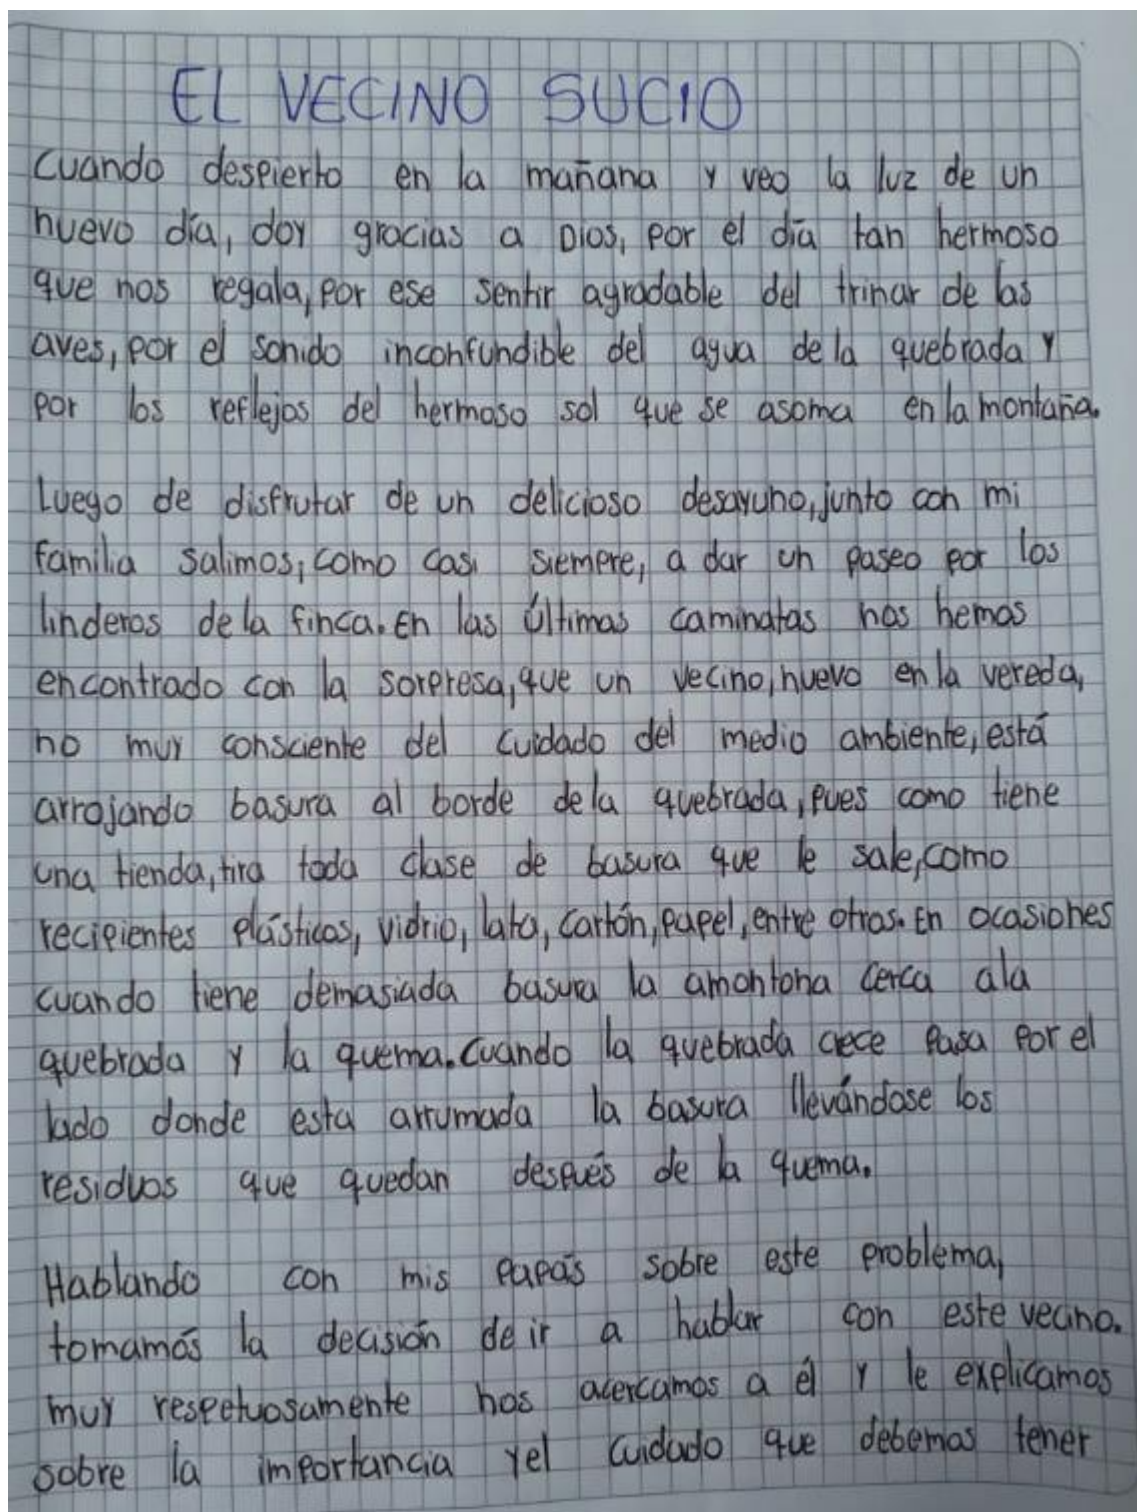 EL VECINO SUCIO
Cuando despierto en la mañana y veo la luz de un
nuevo día, doy gracias a Dios, por el día tan hermoso
que nos regala, por ese sentir agradable del trinar de las
aves, por el sonido inconfundible del agua de la quebrada y
por los reflejos del hermoso sol que se asoma en la montaña.
Luego de disfrutar de un delicioso desayuno, junto con mi
familia salimos, como casi siempre, a dar un paseo por los
linderos de la finca. En las últimas caminatas nos hemos
encontrado con la sorpresa, que un vecino, nuevo en la vereda,
no muy consciente del cuidado del medio ambiente, está
arrojando basura al borde de la quebrada, pues como tiene
una tienda, tira toda clase de basura que le sale, como
recipientes plásticos, vidrio, lata, cartón, papel, entre otros. En ocasiones
cuando tiene demasiada basura la amontona cerca a la
quebrada y la quema. Cuando la quebrada crece pasa por el
lado donde esta arrumada la basura llevándose los
residuos que quedan después de la quema.
Hablando con mis papás sobre este problema,
tomamos la decisión de ir a hablar con este vecino.
muy respetuosamente nos acercamos a él y le explicamos
sobre la importancia y el cuidado que debemos tener